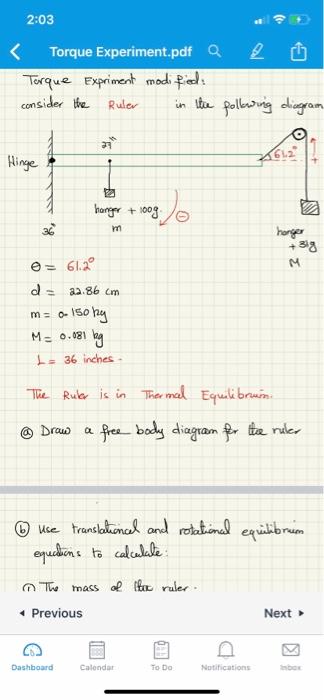 2:03
Torque Experiment.pdf
Torque Expriment modified:
consider the Ruler in the following diagram
Hinge
27"
61.2°
hanger + 100g.
m
36"
hanger
+ 31g
M
θ = 61.2°
d = 22.86 cm
m = 0.150 kg
M = 0.081 kg
L = 36 inches.
The Ruler is in Thermal Equilibrium.
ⓐ Draw a free body diagram for the ruler
ⓑ Use translational and rotational equilibrium
equations to calculate:
① The mass of the ruler.
Previous
Next
Dashboard
Calendar
To Do
Notifications
Inbox